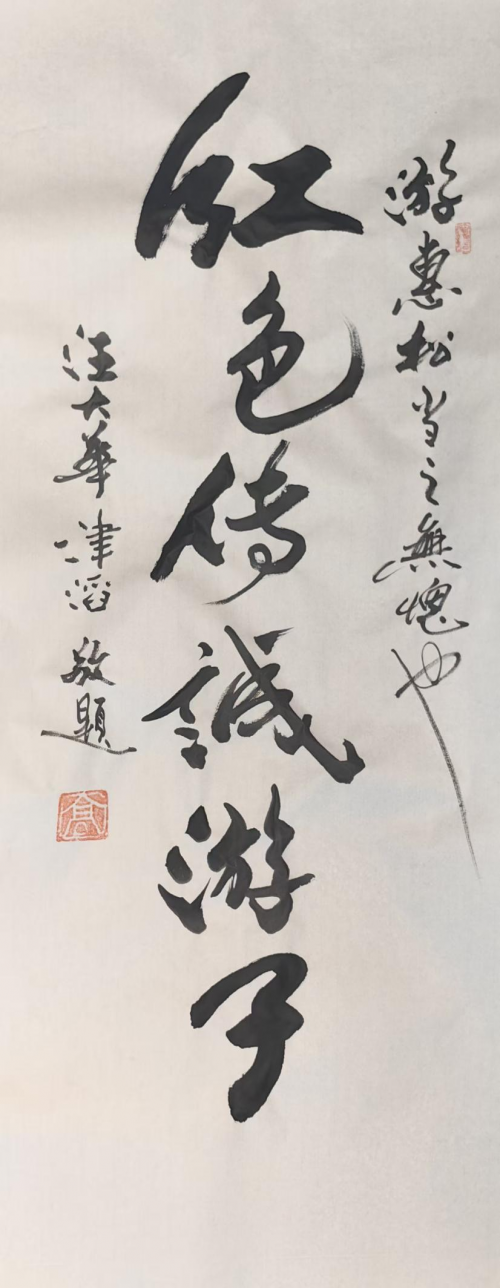 游惠松当之無愧也
紅色傳誠游子
汪大華津滔敬題